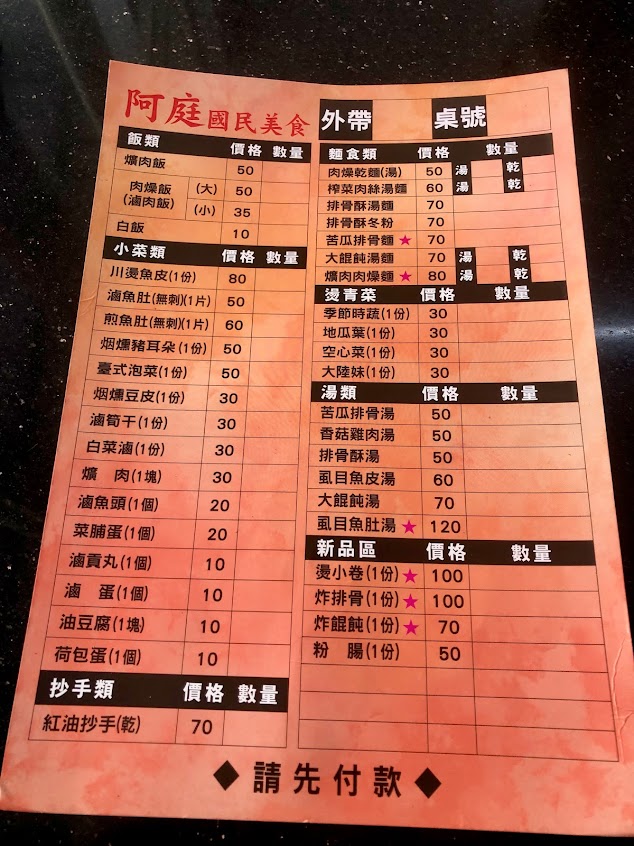 阿庭國民美食
外帶 桌號
飯類 價格 數量
爌肉飯 50
肉燥飯(滷肉飯) (大) 50
(小) 35
白飯 10
小菜類 價格 數量
川燙魚皮(1份) 80
滷魚肚(無刺)(1片) 50
煎魚肚(無刺)(1片) 60
烟燻豬耳朵(1份) 50
臺式泡菜(1份) 50
烟燻豆皮(1份) 30
滷筍干(1份) 30
白菜滷(1份) 30
爌 肉(1塊) 30
滷魚頭(1個) 20
菜脯蛋(1個) 20
滷貢丸(1個) 10
滷 蛋(1個) 10
油豆腐(1塊) 10
荷包蛋(1個) 10
抄手類 價格 數量
紅油抄手(乾) 70
麵食類 價格 數量
肉燥乾麵(湯) 50 湯 乾
榨菜肉絲湯麵 60 湯 乾
排骨酥湯麵 70
排骨酥冬粉 70
苦瓜排骨麵★ 70
大餛飩湯麵 70 湯 乾
爌肉肉燥麵★ 80 湯 乾
燙青菜 價格 數量
季節時蔬(1份) 30
地瓜葉(1份) 30
空心菜(1份) 30
大陸妹(1份) 30
湯類 價格 數量
苦瓜排骨湯 50
香菇雞肉湯 50
排骨酥湯 50
虱目魚皮湯 60
大餛飩湯 70
虱目魚肚湯★ 120
新品區 價格 數量
燙小卷(1份)★ 100
炸排骨(1份)★ 100
炸餛飩(1份)★ 70
粉 腸(1份) 50
◆請先付款◆